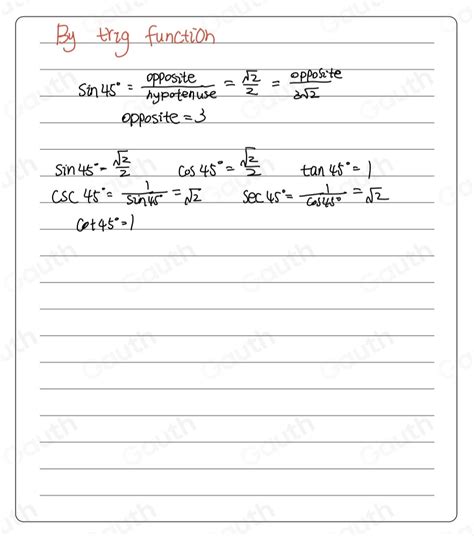 By trig function
sin 45° = opposite/hypotenuse = √2/2 = opposite/3√2
opposite = 3
sin 45° = √2/2 cos 45° = √2/2 tan 45° = 1
csc 45° = 1/sin 45° = √2 sec 45° = 1/cos 45° = √2
cot 45° = 1